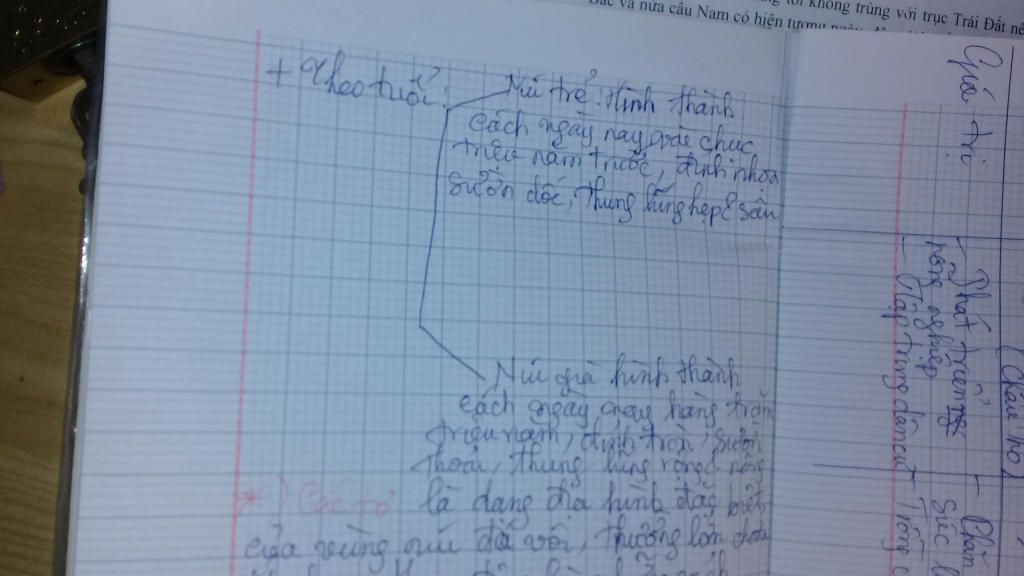 tôi không trùng với trục Trái Đất nê
Bắc và nửa cầu Nam có hiện tượng
+ Theo tuổi:
Núi trẻ: Hình thành
cách ngày nay vài chục
triệu năm trước, đỉnh nhọn
sườn dốc, thung lũng hẹp & sâu
Núi già hình thành
cách ngày nay hàng trăm
triệu năm, đỉnh tròn, sườn
thoải, thung lũng rộng & nông
*) Cácxtơ là dạng địa hình đặc biệt
của vùng núi đá vôi, thường lởm chởm
Giá trị
(Châu thổ)
- Phát triển
nông nghiệp
- Tập trung dân cư
- Chăn
súc
- Trồng c